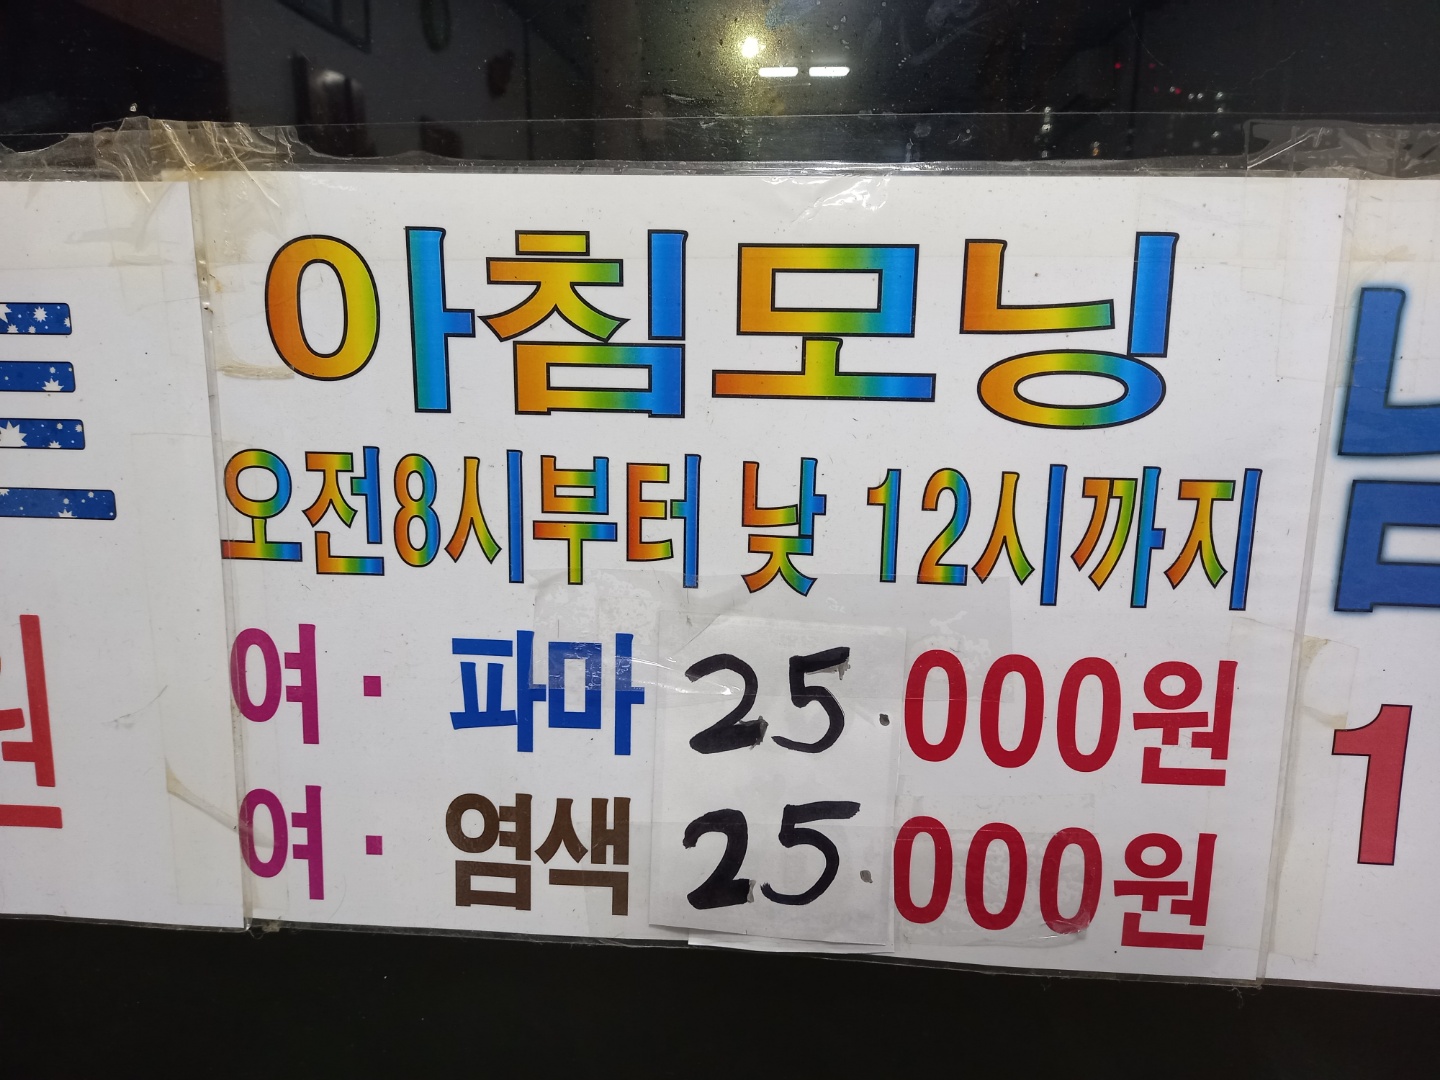 아침모닝
오전8시부터 낮 12시까지
여· 파마 25.000원
여· 염색 25.000원
원
남
1